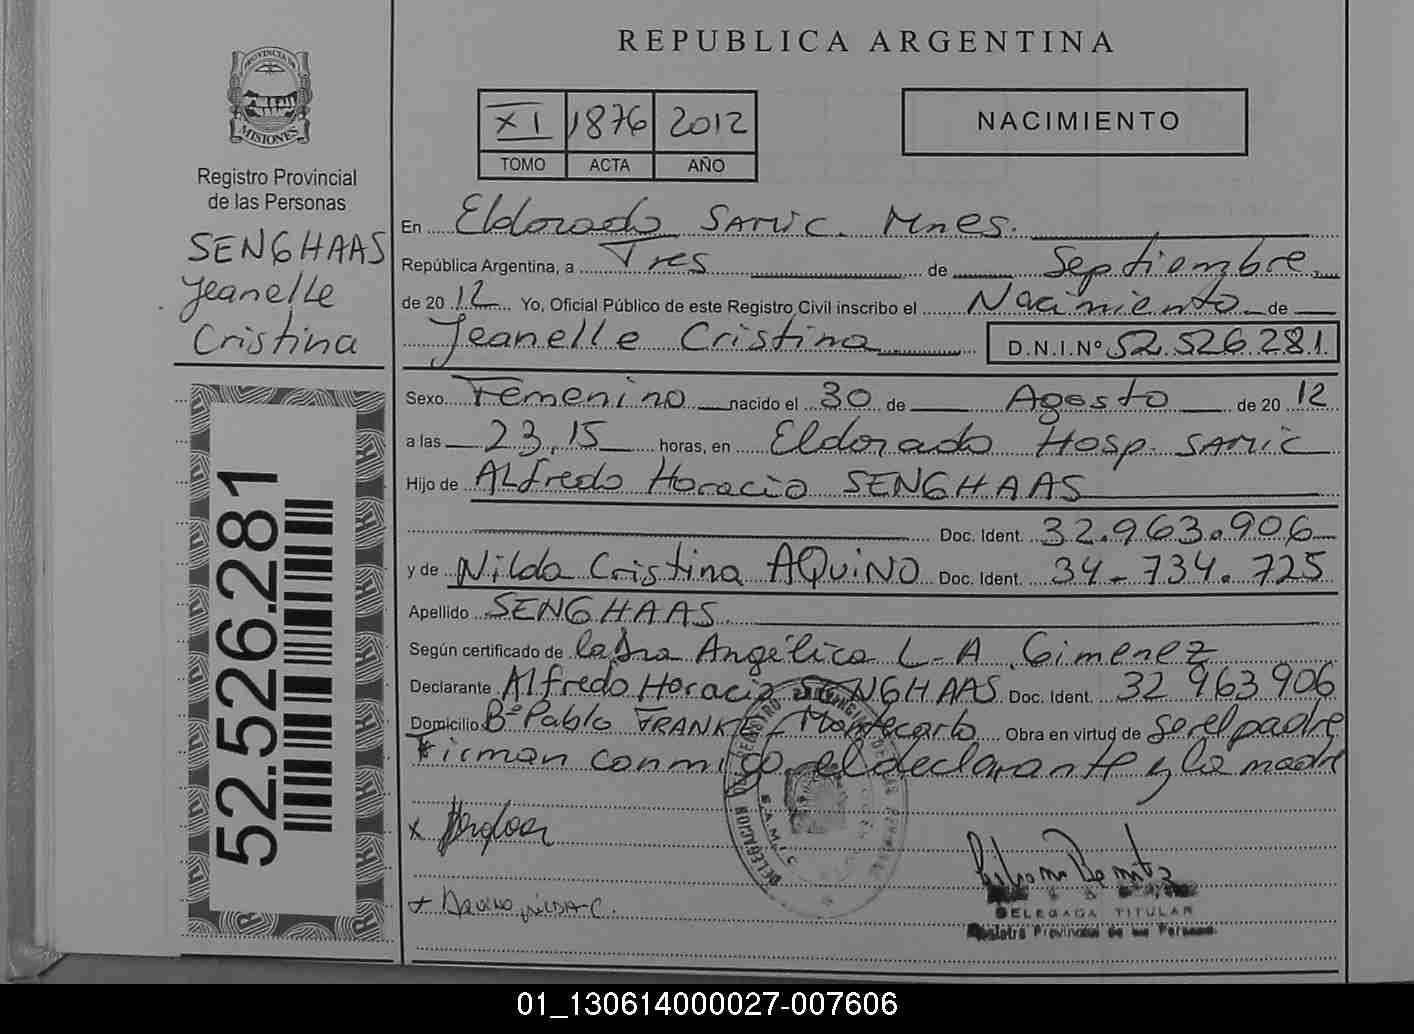 REPUBLICA ARGENTINA
PROVINCIA DE
MISIONES
Registro Provincial
de las Personas
SENGHAAS
Jeanelle
Cristina
52.526.281
XI 1876 2012
TOMO ACTA AÑO
NACIMIENTO
En Eldorado SAMIC. Mnes.
República Argentina, a Tres de Septiembre
de 2012 Yo, Oficial Público de este Registro Civil inscribo el Nacimiento de
Jeanelle Cristina D.N.I.Nº 52.526.281
Sexo Femenino nacido el 30 de Agosto de 2012
a las 23,15 horas, en Eldorado Hosp. SAMIC
Hijo de Alfredo Horacio SENGHAAS
Doc. Ident. 32.963.906
y de Nilda Cristina AQUINO Doc. Ident. 34-734.725
Apellido SENGHAAS
Según certificado de la Dra Angélica L-A Gimenez
Declarante Alfredo Horacio SENGHAAS Doc. Ident. 32 963 906
Domicilio Bº Pablo FRANKE - Montecarlo Obra en virtud de ser el padre
Firman conmigo el declarante y la madre
x
+ AQUINO NILDA-C.
DELEGACION
S.A.M.I.C
DELEGADA TITULAR
Registro Provincial de las Personas
01_130614000027-007606